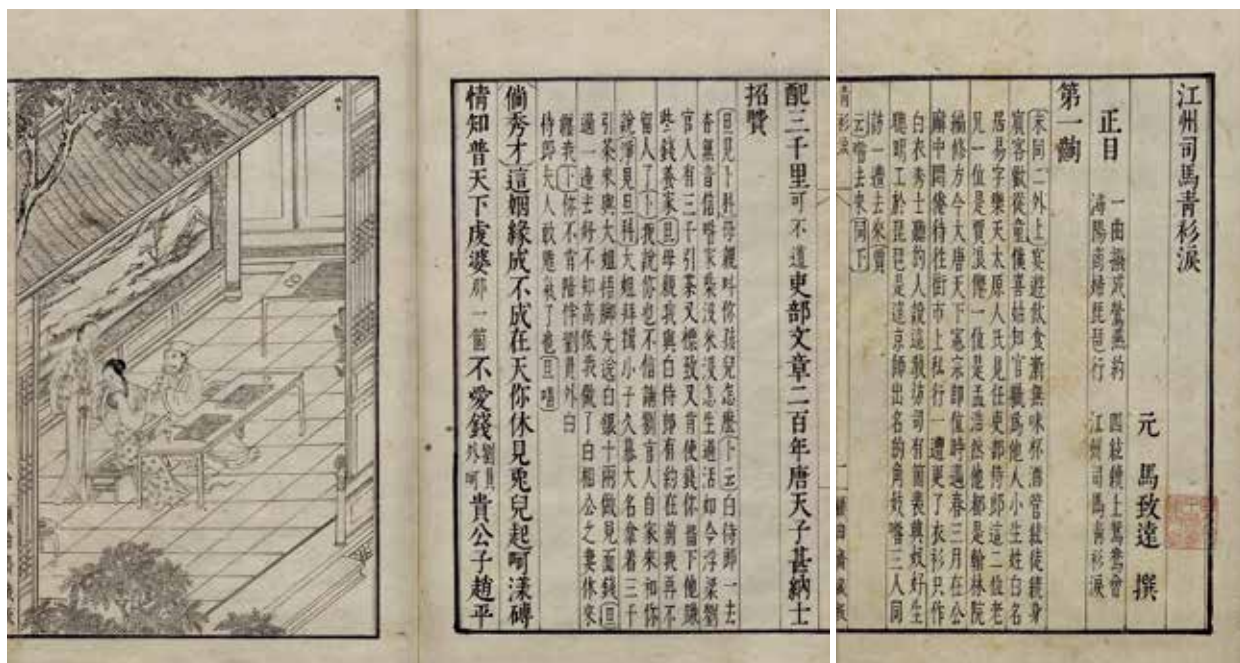 江州司馬青衫淚
元 馬致遠 撰
正目 一曲撥成鶯燕約 四絃續上鴛鴦會
潯陽商婦琵琶行 江州司馬青衫淚
第一齣
末同二外上宴遊飲食漸無味杯酒管絃徒繞身
賓客歡從童僕喜始知官職爲他人小生姓白名
居易字樂天太原人氏見任吏部侍郎這二位老
兄一位是賈浪僊一位是孟浩然他都是翰林院
編修方今大唐天下憲宗卽位時遇春三月在公
廨中悶倦待往街市上私行一遭更了衣衫只作
白衣秀士聽的人說這教坊司有箇裴興奴好生
聰明工於琵琶是這京師出名的角妓喒三人同
訪一遭去來賈
云喒去來同下
青衫淚
配三千里可不道吏部文章二百年唐天子甚納士
招賢
旦見卜科母親叫你孩兒怎麼卜云白侍郎一去
杳無音信喒家柴沒米沒怎生過活如今浮梁劉
官人有三千引茶又標致又肯使錢你留下他賺
些錢養家旦母親我與白侍郎有約在前我再不
留人了卜我說你也不信請劉官人自家來和你
說淨見旦科大姐拜揖小子久慕大名拿着三千
引茶來與大姐焐腳先送白銀十兩做見面錢旦
過一邊去好不知高低我做了白相公之妻休來
纏我卜你不肯陪伴劉員外白
侍郎夫人敢贍養了也旦唱
倘秀才這姻緣成不成在天你休見兎兒起呵漾磚
情知普天下虔婆那一箇不愛錢劉員外呵貴公子趙平